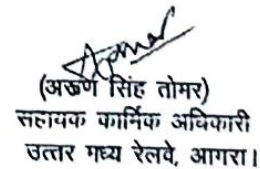 (अरूण सिंह तोमर)
सहायक कार्मिक अधिकारी
उत्तर मध्य रेलवे, आगरा।